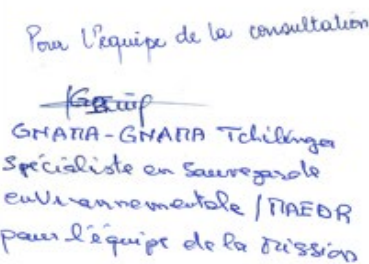 Pour l'équipe de la consultation
GNAMA-GNAMA Tchilinga
Spécialiste en Sauvegarde
environnementale / MAEDR
pour l'équipe de la mission